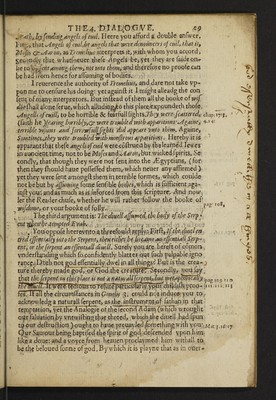 THE 4. DIALOGVE. 29
wrath, by sending angels of euil. Here you afford a double answer.
First, that Angels of euil, be angels that were denouncers of euil, that is,
Moses & Aaron, as Tremelius interprets it, with whom you accord;
secondly that whatsoeuer these Angels be, yet they are said onely
to be sent among them, not into them, and therefore no proofe can
be had from hence for assuming of bodies.
I reuerence the authority of Tremelius, and dare not take vpon
me to censure his doing: yet against it I might alleadge the consent
of many interpreters. But instead of them all the booke of wisedome
shall be for vs, which alluding to this place expoundeth these
Angels of euill, to be horrible & fearfull sights. They were scattered,
(saith he) fearing horribly, & were troubled with apparations. Again,
terrible visions and sorrowfull sights did appeare vnto them. Againe,
Sometimes they were troubled with monstrous apparitions. Hereby it is
apparant that these angels of euil were construed by the learned Iewes
in auncient time, not to be Moses and Aaron, but wicked spirits. Secondly,
that though they entred not first into the Ægyptians, (for
then they should haue possessed them, which neuer any affirmed)
yet they were sent amongst them in terrible formes, which could
not be but by assuming some sensible bodies, which is sufficient against
you: and as much as is inferred from this scripture. And now
let the Reader chuse, whether he will rather follow the booke of
wisdome, or your booke of folly.
The third argument is: The diuell assumed the body of the Serpent
when he tempted Euah.
You oppose hereunto a threefold reply: First, If the diuel entred
essentially into the Serpent, then either he became an essentiall Serpent,
or the serpent an essentiall diuell. Surely you are drunk of errors,
vnderstanding which so confidently blatter out such palpable ignorance;
Doth not god essentially dwel in all things? Is the creature
thereby made god, or God the creature? Secondly, you say
that the serpent in this place is not a naturall serpent, but metaphorically
the diuell. It were tedious to refute particularly your childish prooues.
If all the circumstances in Genesis 3. could not induce you to
acknowledge a naturall serpent, as the instrument of sathan in that
temptation, yet the Analogie of the second Adam (which wrought
our saluation by vntwisting that threed, which the diuell had spun
to our destruction) ought to haue preuailed something with you.
Our Sauiour being baptised the spirit of god descended vpon him
like a doue: and a voyce from heauen proclaimed him withall to
be the beloued sonne of god. By which it is playne that as in outer-
chap. 17.3.
pag. 108.